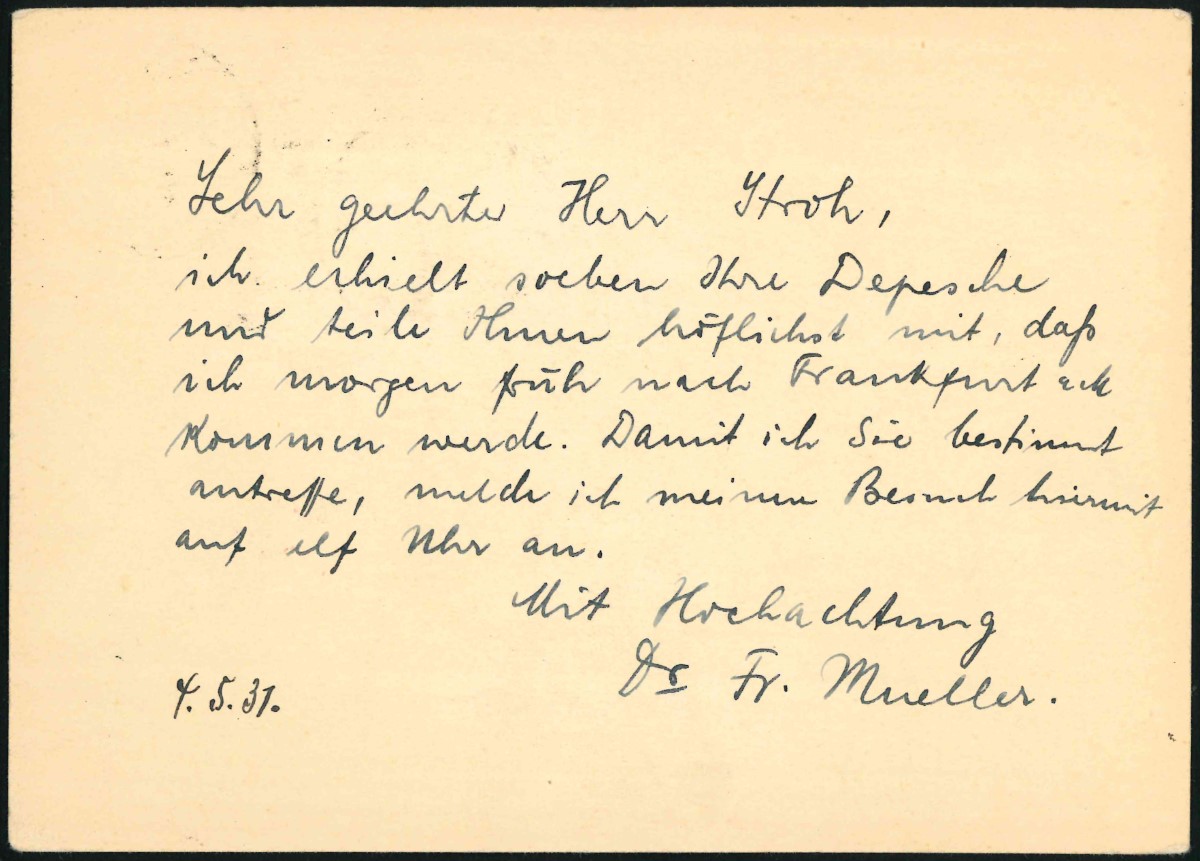 Sehr geehrter Herr Stroh,
ich erhielt soeben Ihre Depesche
und teile Ihnen höflichst mit, daß
ich morgen früh nach Frankfurt
kommen werde. Damit ich Sie bestimmt
antreffe, melde ich meinen Besuch hiermit
auf elf Uhr an.
Mit Hochachtung
Dr Fr. Mueller.
4. 5. 31.